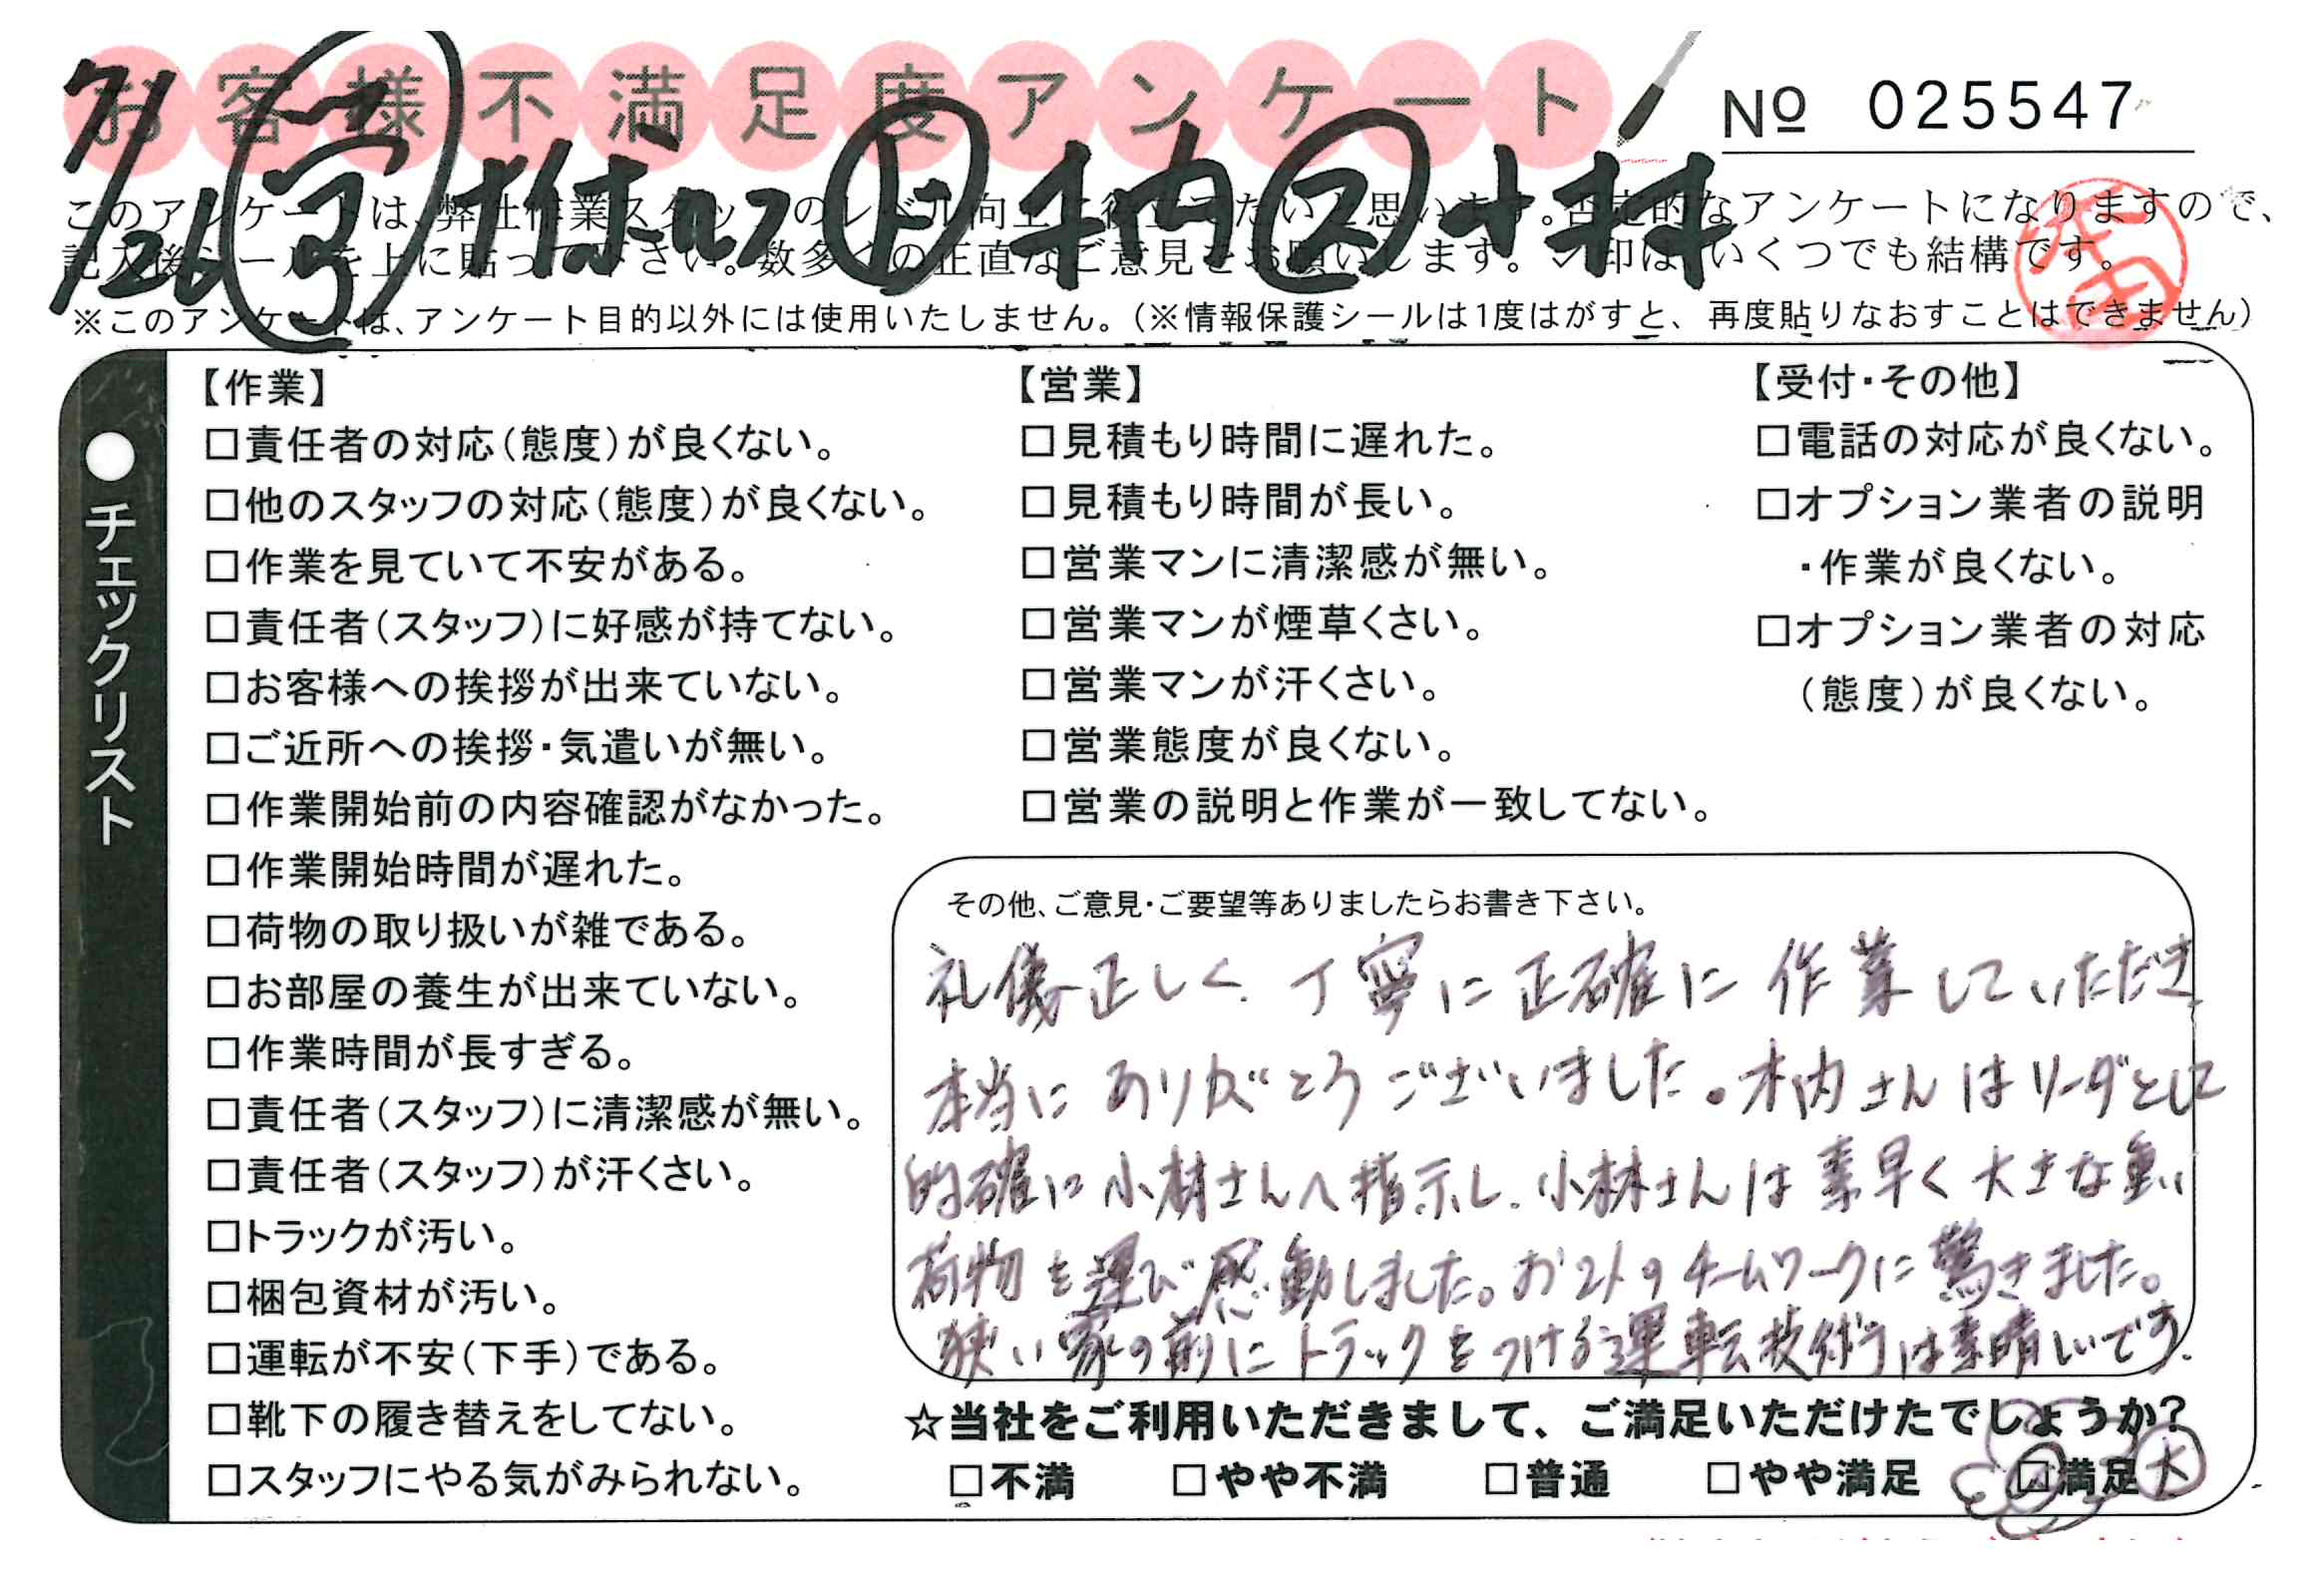 お客様不満足度アンケート
№ 025547
7/26
木内
小林
このアンケートは、弊社作業スタッフのレベル向上に役立てたいと思います。否定的なアンケートになりますので、
記入後シールを上に貼って下さい。数多くの正直なご意見をお願いします。✓印は、いくつでも結構です。
※このアンケートは、アンケート目的以外には使用いたしません。（※情報保護シールは1度はがすと、再度貼りなおすことはできません）
●チェックリスト
【作業】
□責任者の対応（態度）が良くない。
□他のスタッフの対応（態度）が良くない。
□作業を見ていて不安がある。
□責任者（スタッフ）に好感が持てない。
□お客様への挨拶が出来ていない。
□ご近所への挨拶・気遣いが無い。
□作業開始前の内容確認がなかった。
□作業開始時間が遅れた。
□荷物の取り扱いが雑である。
□お部屋の養生が出来ていない。
□作業時間が長すぎる。
□責任者（スタッフ）に清潔感が無い。
□責任者（スタッフ）が汗くさい。
□トラックが汚い。
□梱包資材が汚い。
□運転が不安（下手）である。
□靴下の履き替えをしてない。
□スタッフにやる気がみられない。
【営業】
□見積もり時間に遅れた。
□見積もり時間が長い。
□営業マンに清潔感が無い。
□営業マンが煙草くさい。
□営業マンが汗くさい。
□営業態度が良くない。
□営業の説明と作業が一致してない。
【受付・その他】
□電話の対応が良くない。
□オプション業者の説明
・作業が良くない。
□オプション業者の対応
（態度）が良くない。
その他、ご意見・ご要望等ありましたらお書き下さい。
礼儀正しく、丁寧に正確に作業していただき
本当にありがとうございました。木内さんはリーダとして
的確に小林さんへ指示し、小林さんは素早く大きな重い
荷物を運び感動しました。お2人のチームワークに驚きました。
狭い家の前にトラックをつける運転技術は素晴しいです。
☆当社をご利用いただきまして、ご満足いただけたでしょうか?
□不満 □やや不満 □普通 □やや満足 ☑満足 大